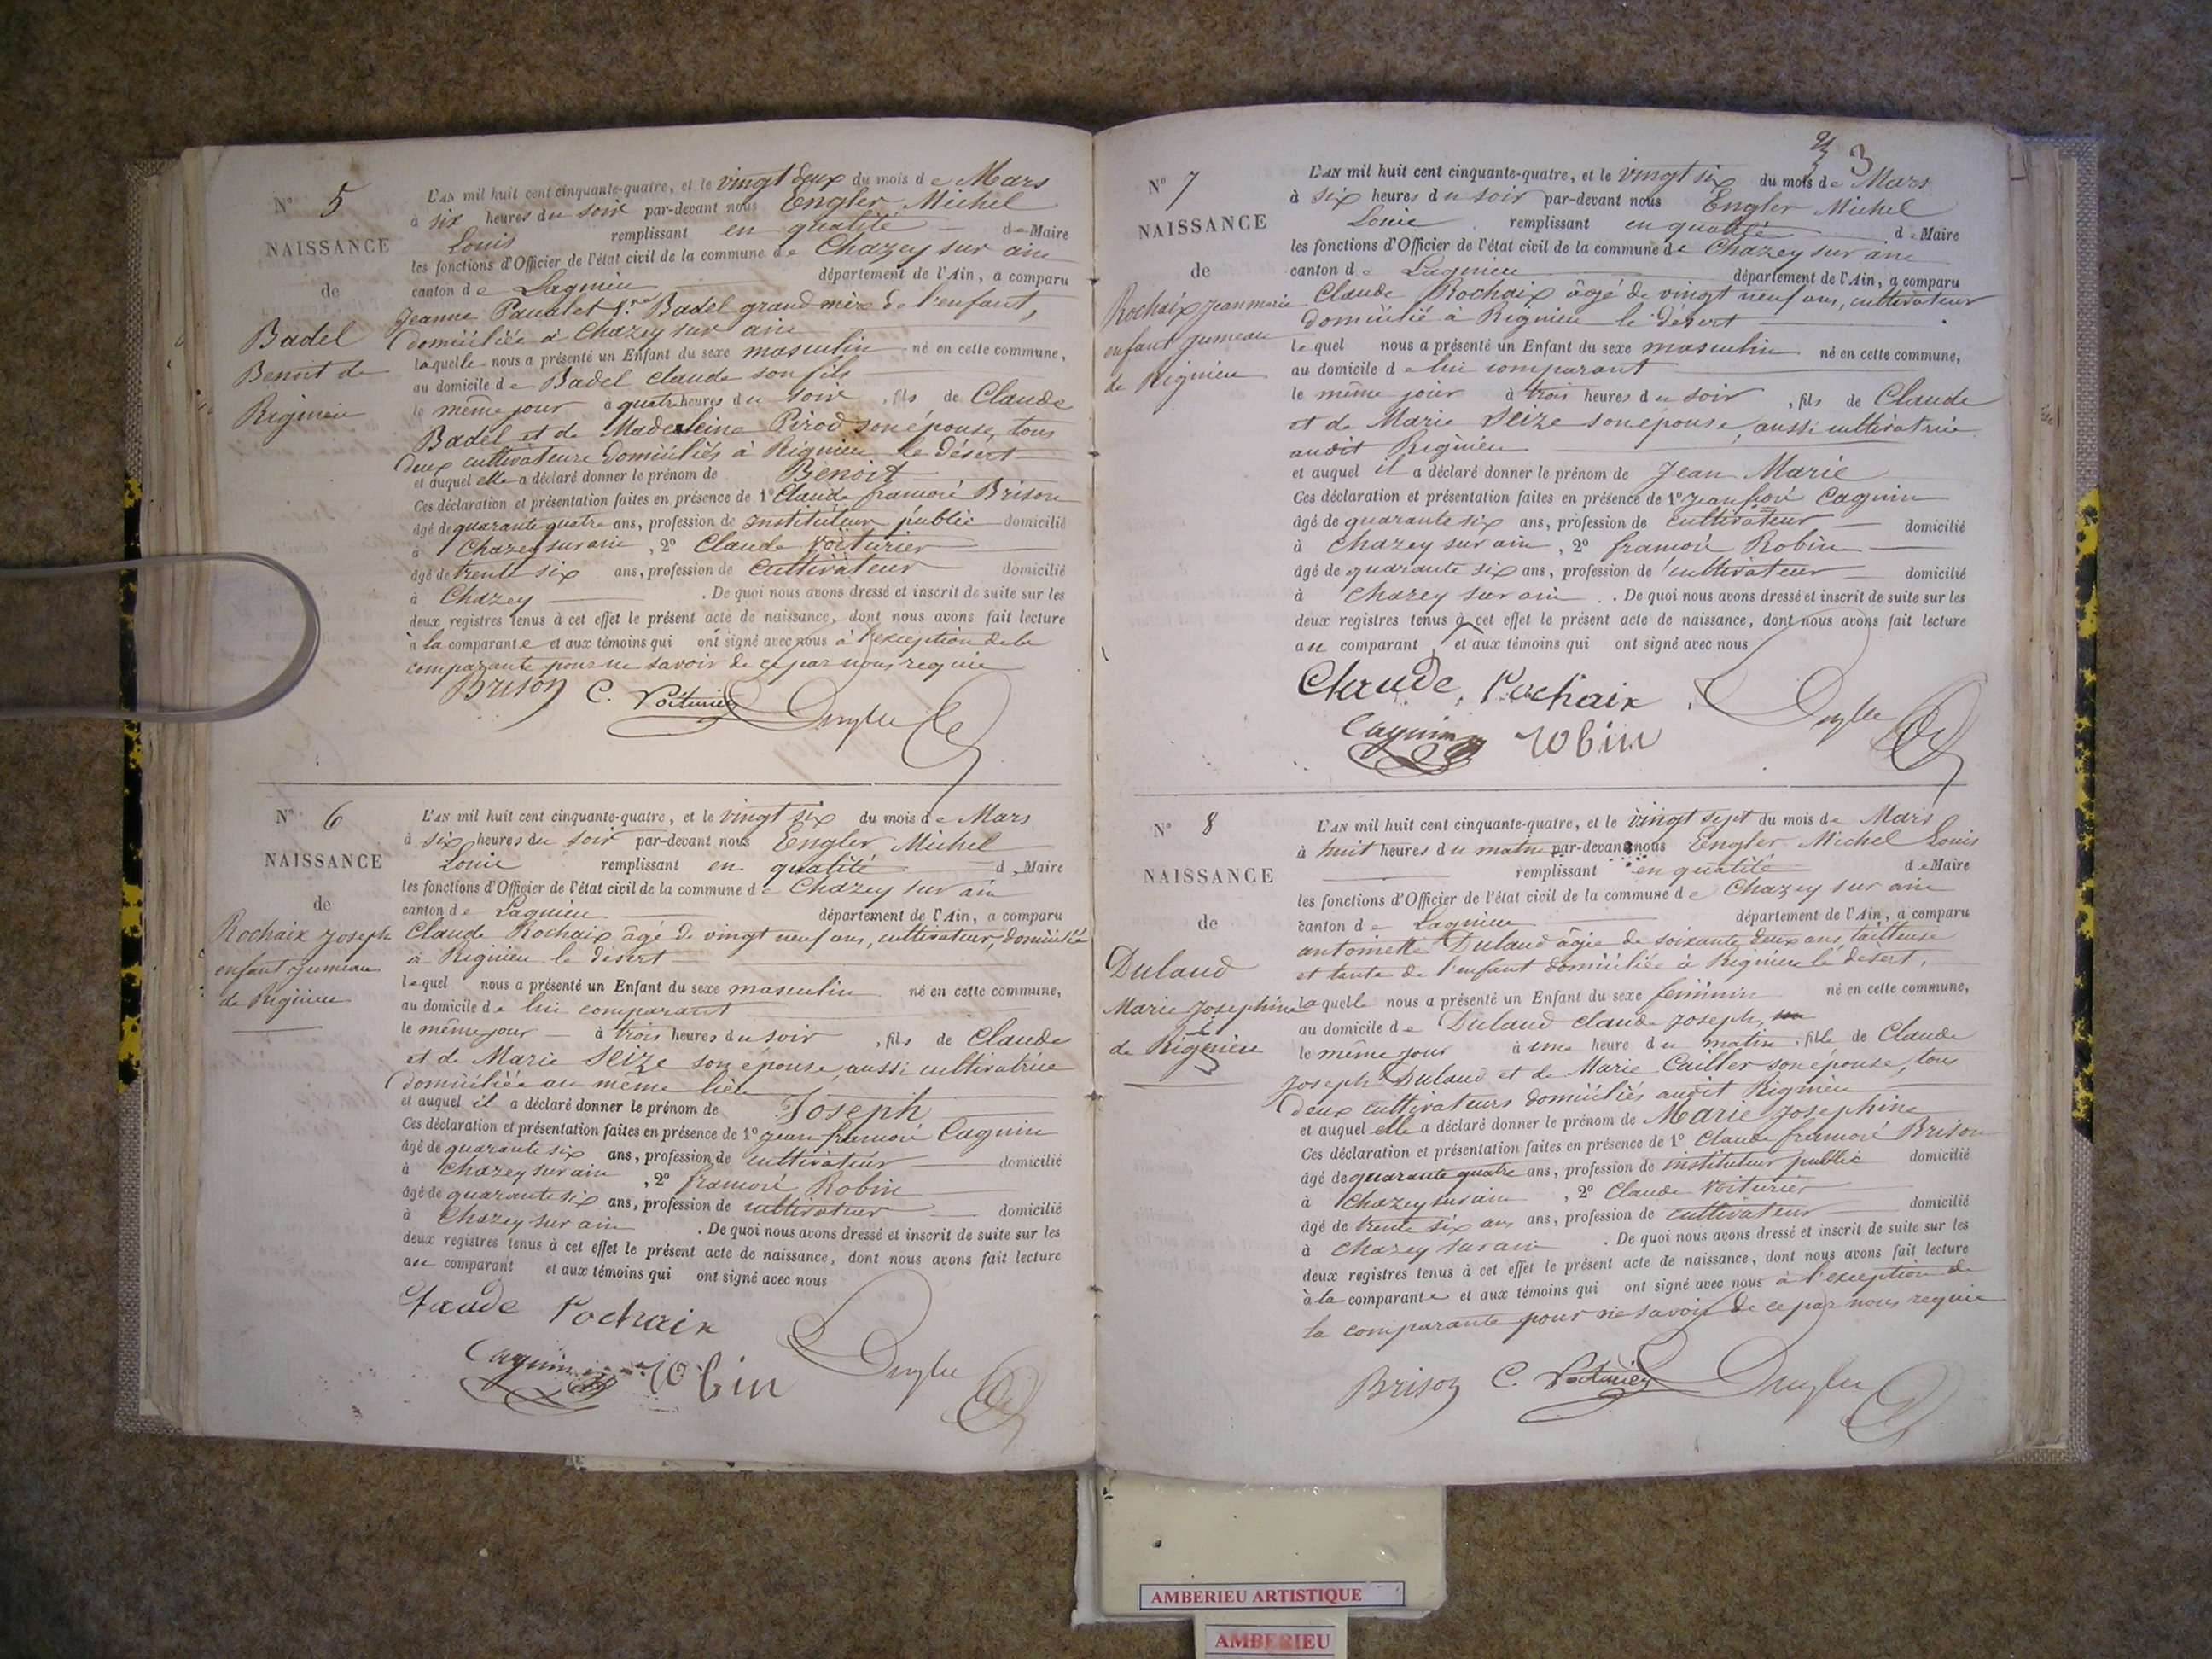 N° 5
NAISSANCE
de
Badel
Benoit de
Rignieu
L'AN mil huit cent cinquante-quatre, et le vingt deux du mois de Mars
à six heures du soir par-devant nous Engler Michel
Louis remplissant en qualité de Maire
les fonctions d'Officier de l'état civil de la commune de Chazey sur ain
canton de Lagnieu département de l'Ain, a comparu
Jeanne Badel grand mère de l'enfant,
domiciliée à Chazey sur ain
laquelle nous a présenté un Enfant du sexe masculin né en cette commune,
au domicile de Badel Claude son fils
le même jour à quatre heures du soir, fils de Claude
Badel et de Madeleine Pirod son épouse, tous
deux cultivateurs domiciliés à Rignieu le désert
et auquel elle a déclaré donner le prénom de Benoit
Ces déclaration et présentation faites en présence de 1° Claude françois Brison
âgé de quarante quatre ans, profession de instituteur public domicilié
à Chazey sur ain, 2° Claude Voiturier
âgé de trente six ans, profession de cultivateur domicilié
à Chazey. De quoi nous avons dressé et inscrit de suite sur les
deux registres tenus à cet effet le présent acte de naissance, dont nous avons fait lecture
à la comparante et aux témoins qui ont signé avec nous à l'exception de la
comparante pour ne savoir de ce par nous requise
Brison C. Voiturier Engler
N° 6
NAISSANCE
de
Rochaix Joseph
enfant jumeau
de Rignieu
L'AN mil huit cent cinquante-quatre, et le vingt six du mois de Mars
à six heures du soir par-devant nous Engler Michel
Louis remplissant en qualité de Maire
les fonctions d'Officier de l'état civil de la commune de Chazey sur ain
canton de Lagnieu département de l'Ain, a comparu
Claude Rochaix âgé de vingt neuf ans, cultivateur, domicilié
à Rignieu le désert
lequel nous a présenté un Enfant du sexe masculin né en cette commune,
au domicile de lui comparant
le même jour à trois heures du soir, fils de Claude
et de Marie Seize son épouse, aussi cultivatrice
domiciliée au même lieu
et auquel il a déclaré donner le prénom de Joseph
Ces déclaration et présentation faites en présence de 1° Jean françois Cagnin
âgé de quarante six ans, profession de cultivateur domicilié
à Chazey sur ain, 2° françois Robin
âgé de quarante six ans, profession de cultivateur domicilié
à Chazey sur ain. De quoi nous avons dressé et inscrit de suite sur les
deux registres tenus à cet effet le présent acte de naissance, dont nous avons fait lecture
au comparant et aux témoins qui ont signé avec nous
Claude Rochaix
Cagnin Robin Engler
3
N° 7
NAISSANCE
de
Rochaix Jean marie
enfant jumeau
de Rignieu
L'AN mil huit cent cinquante-quatre, et le vingt six du mois de Mars
à six heures du soir par-devant nous Engler Michel
Louis remplissant en qualité de Maire
les fonctions d'Officier de l'état civil de la commune de Chazey sur ain
canton de Lagnieu département de l'Ain, a comparu
Claude Rochaix âgé de vingt neuf ans, cultivateur
domicilié à Rignieu le désert
lequel nous a présenté un Enfant du sexe masculin né en cette commune,
au domicile de lui comparant
le même jour à trois heures du soir, fils de Claude
et de Marie Seize son épouse, aussi cultivatrice
audit Rignieu
et auquel il a déclaré donner le prénom de Jean Marie
Ces déclaration et présentation faites en présence de 1° Jean Cagnin
âgé de quarante six ans, profession de cultivateur domicilié
à Chazey sur ain, 2° françois Robin
âgé de quarante six ans, profession de cultivateur domicilié
à Chazey sur ain. De quoi nous avons dressé et inscrit de suite sur les
deux registres tenus à cet effet le présent acte de naissance, dont nous avons fait lecture
au comparant et aux témoins qui ont signé avec nous
Claude Rochaix
Cagnin Robin Engler
N° 8
NAISSANCE
de
Dulaud
Marie Josephine
de Rignieu
L'AN mil huit cent cinquante-quatre, et le vingt sept du mois de Mars
à huit heures du matin par-devant nous Engler Michel Louis
remplissant en qualité de Maire
les fonctions d'Officier de l'état civil de la commune de Chazey sur ain
canton de Lagnieu département de l'Ain, a comparu
antoinette Dulaud âgée de soixante deux ans, tailleuse
et tante de l'enfant domiciliée à Rignieu le désert,
laquelle nous a présenté un Enfant du sexe féminin né en cette commune,
au domicile de Dulaud Claude Joseph,
le même jour à une heure du matin, fille de Claude
Joseph Dulaud et de Marie Cailler son épouse, tous
deux cultivateurs domiciliés audit Rignieu
et auquel elle a déclaré donner le prénom de Marie Josephine
Ces déclaration et présentation faites en présence de 1° Claude françois Brison
âgé de quarante quatre ans, profession de instituteur public domicilié
à Chazey sur ain, 2° Claude Voiturier
âgé de trente six ans ans, profession de cultivateur domicilié
à Chazey sur ain. De quoi nous avons dressé et inscrit de suite sur les
deux registres tenus à cet effet le présent acte de naissance, dont nous avons fait lecture
à la comparante et aux témoins qui ont signé avec nous à l'exception de
la comparante pour ne savoir de ce par nous requise
Brison C. Voiturier Engler
AMBERIEU ARTISTIQUE
AMBERIEU